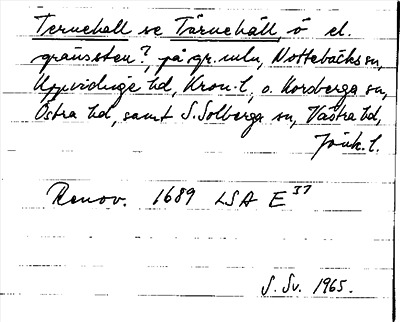 Ternehall se Tärnehäll ö el.
gränssten?, på gr. mln, Nottebäcks sn,
Uppvidinge hd, Kron. l., o. Korsberga sn,
Östra hd, samt S. Solberga sn, Västra hd,
Jönk. l.
Renov. 1689 LSA E 37
S. Sv. 1965.